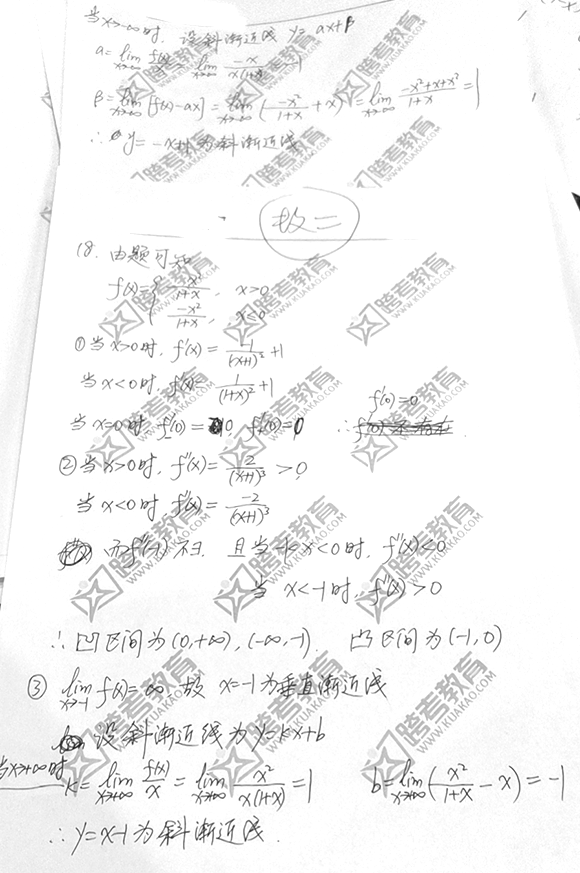 当x→-∞时, 设斜渐近线 y=ax+β
a=lim x→-∞ f(x)/x = lim x→-∞ -x/x(1+x)
β=lim x→-∞ [f(x)-ax] = lim x→-∞ (-x²/1+x + x) = lim x→-∞ -x²+x+x²/1+x = 1
∴ y=-x+1为斜渐近线
故二
18. 由题可知
f(x)={ x²/1+x, x>0
-x²/1+x, x≤0
①当x>0时, f'(x)= -1/(x+1)² +1
当x<0时, f'(x)= 1/(1+x)² +1
f'(0)=0
当x=0时, f'₋(0)=0, f'₊(0)=0 ∴
②当x>0时, f''(x)= 2/(x+1)³ >0
当x<0时, f''(x)= -2/(x+1)³
而f''(-1)不ヨ. 且当-1<x<0时, f''(x)<0
当 x<-1时, f''(x)>0
∴凹区间为(0,+∞), (-∞,-1). 凸区间为(-1,0)
③ lim x→-1 f(x)=∞ 故 x=-1为垂直渐近线
设斜渐近线为y=kx+b
当x→+∞时 k=lim x→+∞ f(x)/x = lim x→+∞ x²/x(1+x) =1 b=lim x→+∞ (x²/1+x - x) = -1
∴y=x-1为斜渐近线.
跨考教育
WWW.KUAKAO.COM